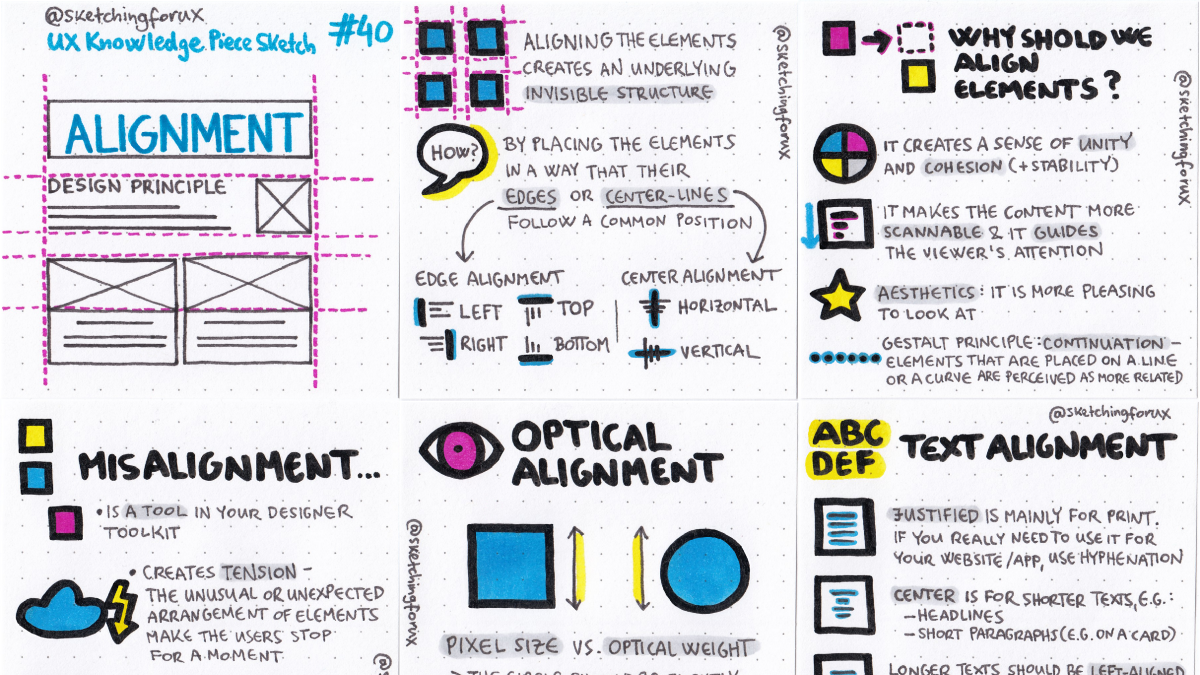 @sketchingforux
UX Knowledge Piece Sketch #40
ALIGNMENT
DESIGN PRINCIPLE
ALIGNING THE ELEMENTS
CREATES AN UNDERLYING
INVISIBLE STRUCTURE
@sketchingforux
HOW?
BY PLACING THE ELEMENTS
IN A WAY THAT THEIR
EDGES OR CENTER-LINES
FOLLOW A COMMON POSITION
EDGE ALIGNMENT
LEFT
TOP
RIGHT
BOTTOM
CENTER ALIGNMENT
HORIZONTAL
VERTICAL
WHY SHOLD WE
ALIGN
ELEMENTS?
@sketchingforux
IT CREATES A SENSE OF UNITY
AND COHESION (+ STABILITY)
IT MAKES THE CONTENT MORE
SCANNABLE & IT GUIDES
THE VIEWER'S ATTENTION
AESTHETICS: IT IS MORE PLEASING
TO LOOK AT
GESTALT PRINCIPLE: CONTINUATION –
ELEMENTS THAT ARE PLACED ON A LINE
OR A CURVE ARE PERCEIVED AS MORE RELATED
MISALIGNMENT...
• IS A TOOL IN YOUR DESIGNER
TOOLKIT
• CREATES TENSION –
THE UNUSUAL OR UNEXPECTED
ARRANGEMENT OF ELEMENTS
MAKE THE USERS STOP
FOR A MOMENT.
OPTICAL
ALIGNMENT
@sketchingforux
PIXEL SIZE VS. OPTICAL WEIGHT
@sketchingforux
ABC
DEF
TEXT ALIGNMENT
JUSTIFIED IS MAINLY FOR PRINT.
IF YOU REALLY NEED TO USE IT FOR
YOUR WEBSITE/APP, USE HYPHENATION
CENTER IS FOR SHORTER TEXTS, E.G.:
– HEADLINES
– SHORT PARAGRAPHS (E.G. ON A CARD)
LONGER TEXTS SHOULD BE LEFT-ALIGNED